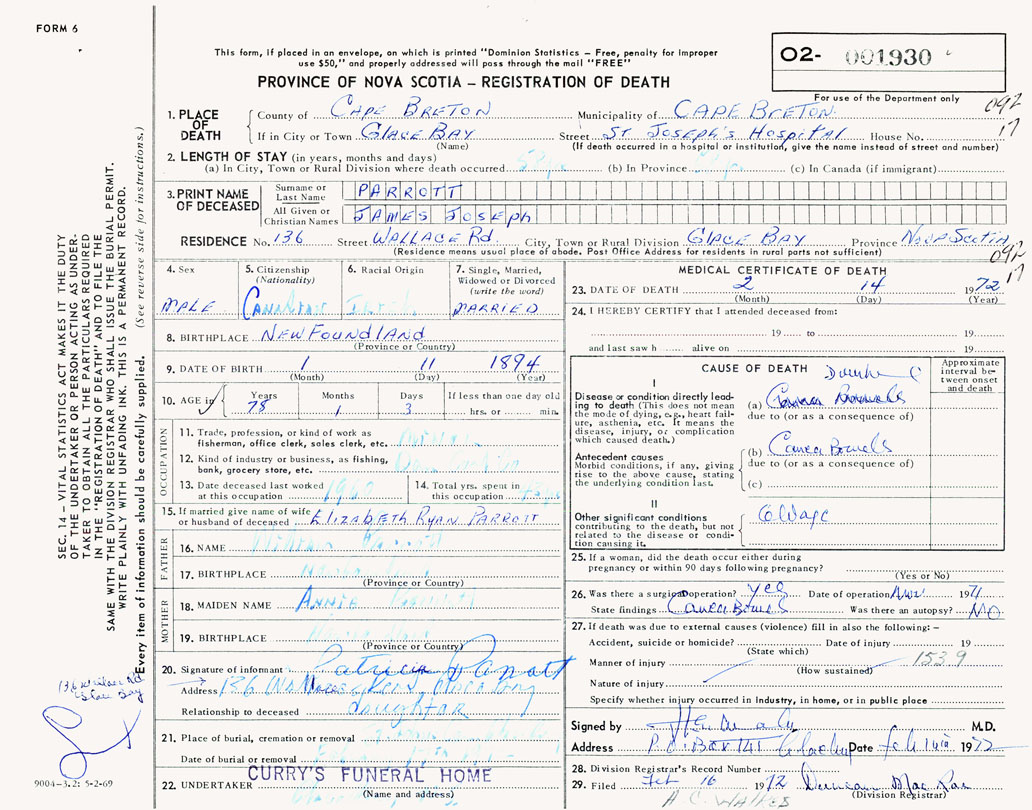 FORM 6
This form, if placed in an envelope, on which is printed "Dominion Statistics – Free, penalty for improper
use $50," and properly addressed will pass through the mail "FREE"
PROVINCE OF NOVA SCOTIA – REGISTRATION OF DEATH
O2- 001930
For use of the Department only
092
17
SEC. 14 – VITAL STATISTICS ACT MAKES IT THE DUTY
OF THE UNDERTAKER OR PERSON ACTING AS UNDER-
TAKER TO OBTAIN ALL THE PARTICULARS REQUIRED
IN THE "REGISTRATION OF DEATH" AND TO FILE THE
SAME WITH THE DIVISION REGISTRAR WHO SHALL ISSUE THE BURIAL PERMIT.
WRITE PLAINLY WITH UNFADING INK. THIS IS A PERMANENT RECORD.
Every item of information should be carefully supplied. (See reverse side for instructions.)
1. PLACE OF DEATH
County of CAPE BRETON Municipality of CAPE BRETON
If in City or Town GLACE BAY Street ST JOSEPH'S HOSPITAL House No.
(Name) (If death occurred in a hospital or institution, give the name instead of street and number)
2. LENGTH OF STAY (in years, months and days)
(a) In City, Town or Rural Division where death occurred (b) In Province (c) In Canada (if immigrant)
3. PRINT NAME OF DECEASED
Surname or Last Name PARROTT
All Given or Christian Names JAMES JOSEPH
RESIDENCE No. 136 Street WALLACE Rd. City, Town or Rural Division GLACE BAY Province NOVA SCOTIA
(Residence means usual place of abode. Post Office Address for residents in rural parts not sufficient)
092
17
4. Sex MALE
5. Citizenship (Nationality) CANADIAN
6. Racial Origin
7. Single, Married, Widowed or Divorced (write the word) MARRIED
8. BIRTHPLACE NEWFOUNDLAND
(Province or Country)
9. DATE OF BIRTH 1 11 1894
(Month) (Day) (Year)
10. AGE in Years 78 Months 1 Days 3 If less than one day old
hrs. or min.
OCCUPATION
11. Trade, profession, or kind of work as
fisherman, office clerk, sales clerk, etc.
12. Kind of industry or business, as fishing,
bank, grocery store, etc.
13. Date deceased last worked
at this occupation 1960
14. Total yrs. spent in
this occupation
15. If married give name of wife
or husband of deceased ELIZABETH RYAN PARROTT
FATHER
16. NAME
17. BIRTHPLACE
(Province or Country)
MOTHER
18. MAIDEN NAME ANNIE
19. BIRTHPLACE
(Province or Country)
20. Signature of informant Patricia Parrott
Address 136
Relationship to deceased daughter
21. Place of burial, cremation or removal
Date of burial or removal
22. UNDERTAKER CURRY'S FUNERAL HOME
(Name and address)
9004-3.2: 5-2-69
MEDICAL CERTIFICATE OF DEATH
23. DATE OF DEATH 2 14 1972
(Month) (Day) (Year)
24. I HEREBY CERTIFY that I attended deceased from:
19 to 19
and last saw h alive on 19
CAUSE OF DEATH
Approximate interval between onset and death
I
Disease or condition directly lead-
ing to death (This does not mean
the mode of dying, e.g., heart fail-
ure, asthenia, etc. It means the
disease, injury, or complication
which caused death.)
(a)
due to (or as a consequence of)
Antecedent causes
Morbid conditions, if any, giving
rise to the above cause, stating
the underlying condition last.
(b) Cancer Bowels
due to (or as a consequence of)
(c)
II
Other significant conditions
contributing to the death, but not
related to the disease or condi-
tion causing it.
25. If a woman, did the death occur either during
pregnancy or within 90 days following pregnancy?
(Yes or No)
26. Was there a surgical operation? Yes Date of operation 1971
State findings Cancer Bowels Was there an autopsy? NO
27. If death was due to external causes (violence) fill in also the following: –
Accident, suicide or homicide? Date of injury 19
(State which)
Manner of injury 153.9
(How sustained)
Nature of injury
Specify whether injury occurred in industry, in home, or in public place
Signed by M.D.
Address P.O. Box 141 Date Feb 14 1972
28. Division Registrar's Record Number
29. Filed Feb 16 1972 Duncan Mac Rae
(Division Registrar)